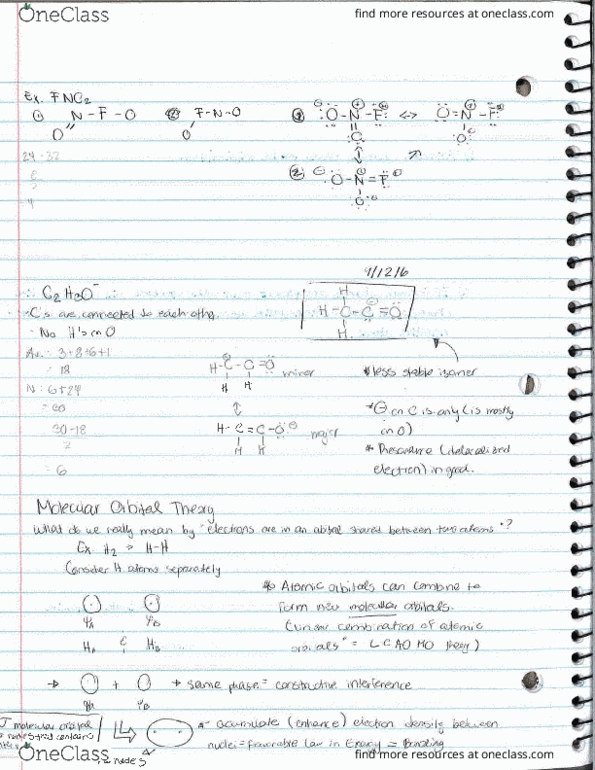 OneClass
find more resources at oneclass.com
Ex. FNO2
① N - F - O
O
F-N-O
O
:Ö-N-F: ↔ O=N-F:
24 - 32
8
2
4
② Ö-N=F
9/12/6
C2H3O⁻
- C's are connected to each other.
- No H's on O
Av: 3+8+6+1
18
N: 6+24
= 30
30-18
2
= 6
H
H-C-C=O
H
less stable isomer
H-C-C=O minor
H H
H-C=C-O⁻ major
H H
* ⊖ on C is only (is mostly
in O)
* Resonance (delocalized
election) in good.
Molecular Orbital Theory
What do we really mean by "electrons are in an obital shared between two atoms"?
Ex H2 ⇒ H-H
Consider H atoms separately
ΨA ΨB
HA & HB
* Atomic orbitals can combine to
form new molecular orbitals.
(Linear combination of atomic
orbitals" = LCAO MO theory)
→ + → same phase = constructive interference
ΨA ΨB
molecular orbital
nodes that contains
* acumulate (enhance) electron density between
nuclei = favorable law in Energy = Bonding
nodes
OneClass
find more resources at oneclass.com